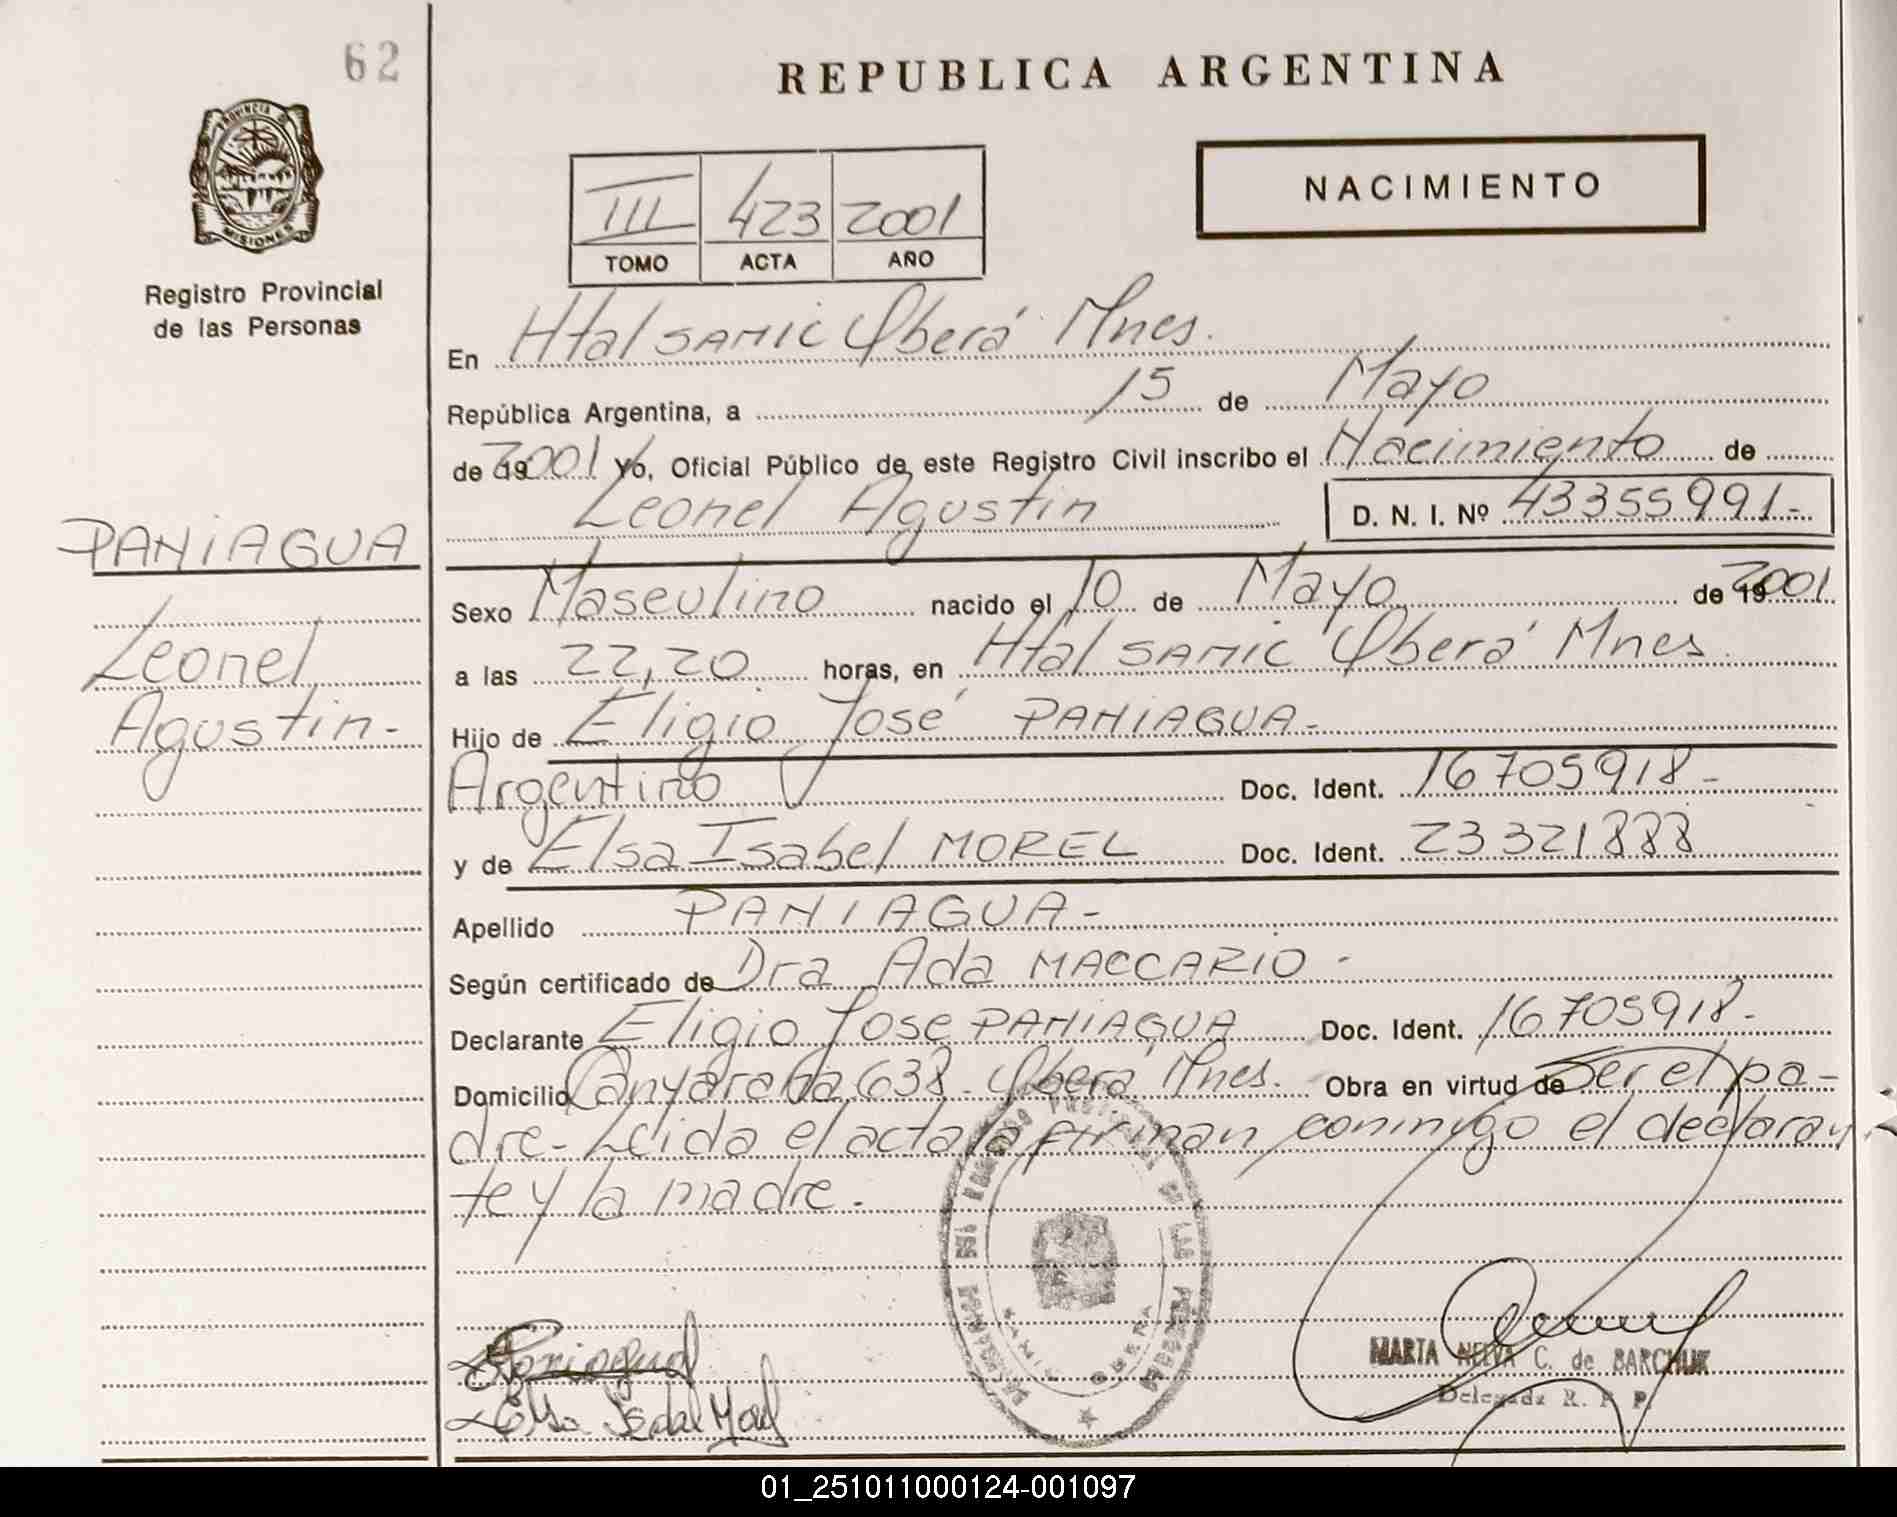 62
REPUBLICA ARGENTINA
PROVINCIA DE
MISIONES
Registro Provincial
de las Personas
III 423 2001
TOMO ACTA AÑO
NACIMIENTO
En Htal SAMIC Oberá Mnes.
República Argentina, a 15 de Mayo
de 19 2001 Yo, Oficial Público de este Registro Civil inscribo el Nacimiento de
Leonel Agustin D. N. I. Nº 43355991-
PANiAGUA
Leonel
Agustin-
Sexo Masculino nacido el 10 de Mayo de 19 2001
a las 22,20 horas, en Htal SAMIC Oberá Mnes.
Hijo de Eligio José PANIAGUA-
Argentino Doc. Ident. 16705918-
y de Elsa Isabel MOREL Doc. Ident. 23321888
Apellido PANIAGUA-
Según certificado de Dra Ada MACCARIO-
Declarante Eligio Jose PANIAGUA Doc. Ident. 16705918-
Domicilio 638- Oberá Mnes. Obra en virtud de Ser el pa-
dre- Leida el acta la firman conmigo el declaran
te y la madre.
Paniagua
Elsa Isabel Morel
SAMIC OBERA
MARTA NELVA C. de BARCHUK
Delegada R. P. P.
01_251011000124-001097